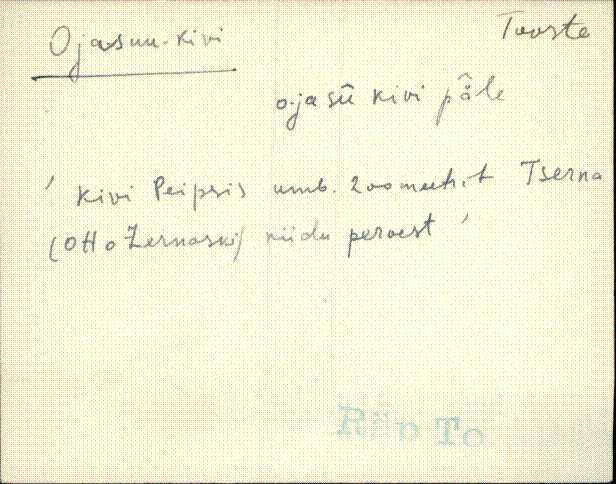 Ojasuu-kivi Tooste
ojasū kivi på̂le
' kivi Peipsis umb. 200 meetrit Tserna
(Otto Zernaski) niidu pervest '
Räp To